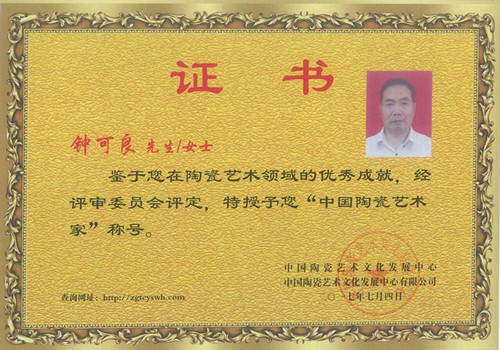 证 书
钟可良 先生/女士
鉴于您在陶瓷艺术领域的优秀成就，经
评审委员会评定，特授予您“中国陶瓷艺术
家”称号。
中国陶瓷艺术文化发展中心
中国陶瓷艺术文化发展中心有限公司
查询网址：http://zgtcyswh.com
二〇一七年七月四日